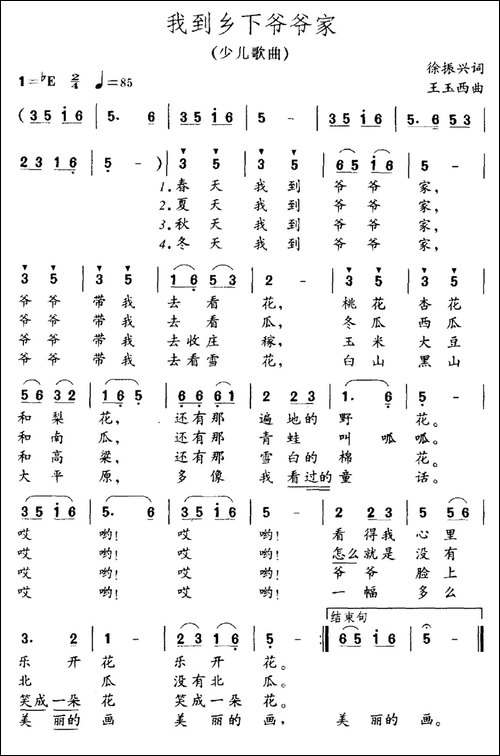 我到乡下爷爷家
(少儿歌曲)
1=♭E 2/4 ♩=85
徐振兴词
王玉西曲
(3 5 i 6 | 5. 6 | 3 5 i 6 | 5 - | 3 5 i 6 | 5. 6 5 3 |
2 3 1 6 | 5 - ) | 3 5 3 5 | 6 5 i 6 | 5 - |
1.春天我到爷爷家,
2.夏天我到爷爷家,
3.秋天我到爷爷家,
4.冬天我到爷爷家,
3 5 3 5 | 1 6 5 3 | 2 - | 3 5 3 5 |
爷爷带我去看花, 桃花杏花
爷爷带我去看瓜, 冬瓜西瓜
爷爷带我去收庄稼, 玉米大豆
爷爷带我去看雪花, 白山黑山
5 6 3 2 | 1 6 5 | 6 6 6 1 | 2 2 3 | 1. 6 | 5 - |
和梨花, 还有那遍地的野花。
和南瓜, 还有那青蛙叫呱呱。
和高粱, 还有那雪白的棉花。
大平原, 多像我看过的童话。
3 5 i 6 | 5. 6 | 3 5 i 6 | 5 - | 2 2 3 | 5 5 6 |
哎哟! 哎哟! 看得我心里
哎哟! 哎哟! 怎么就是没有
哎哟! 哎哟! 爷爷脸上
哎哟! 哎哟! 一幅多么
结束句
3. 2 | 1 - | 2 2 1 6 | 5 - :| 6 5 i 6 | 5 - ‖
乐开花乐开花。
北瓜没有北瓜。
笑成一朵花笑成一朵花。
美丽的画美丽的画, 美丽的画。